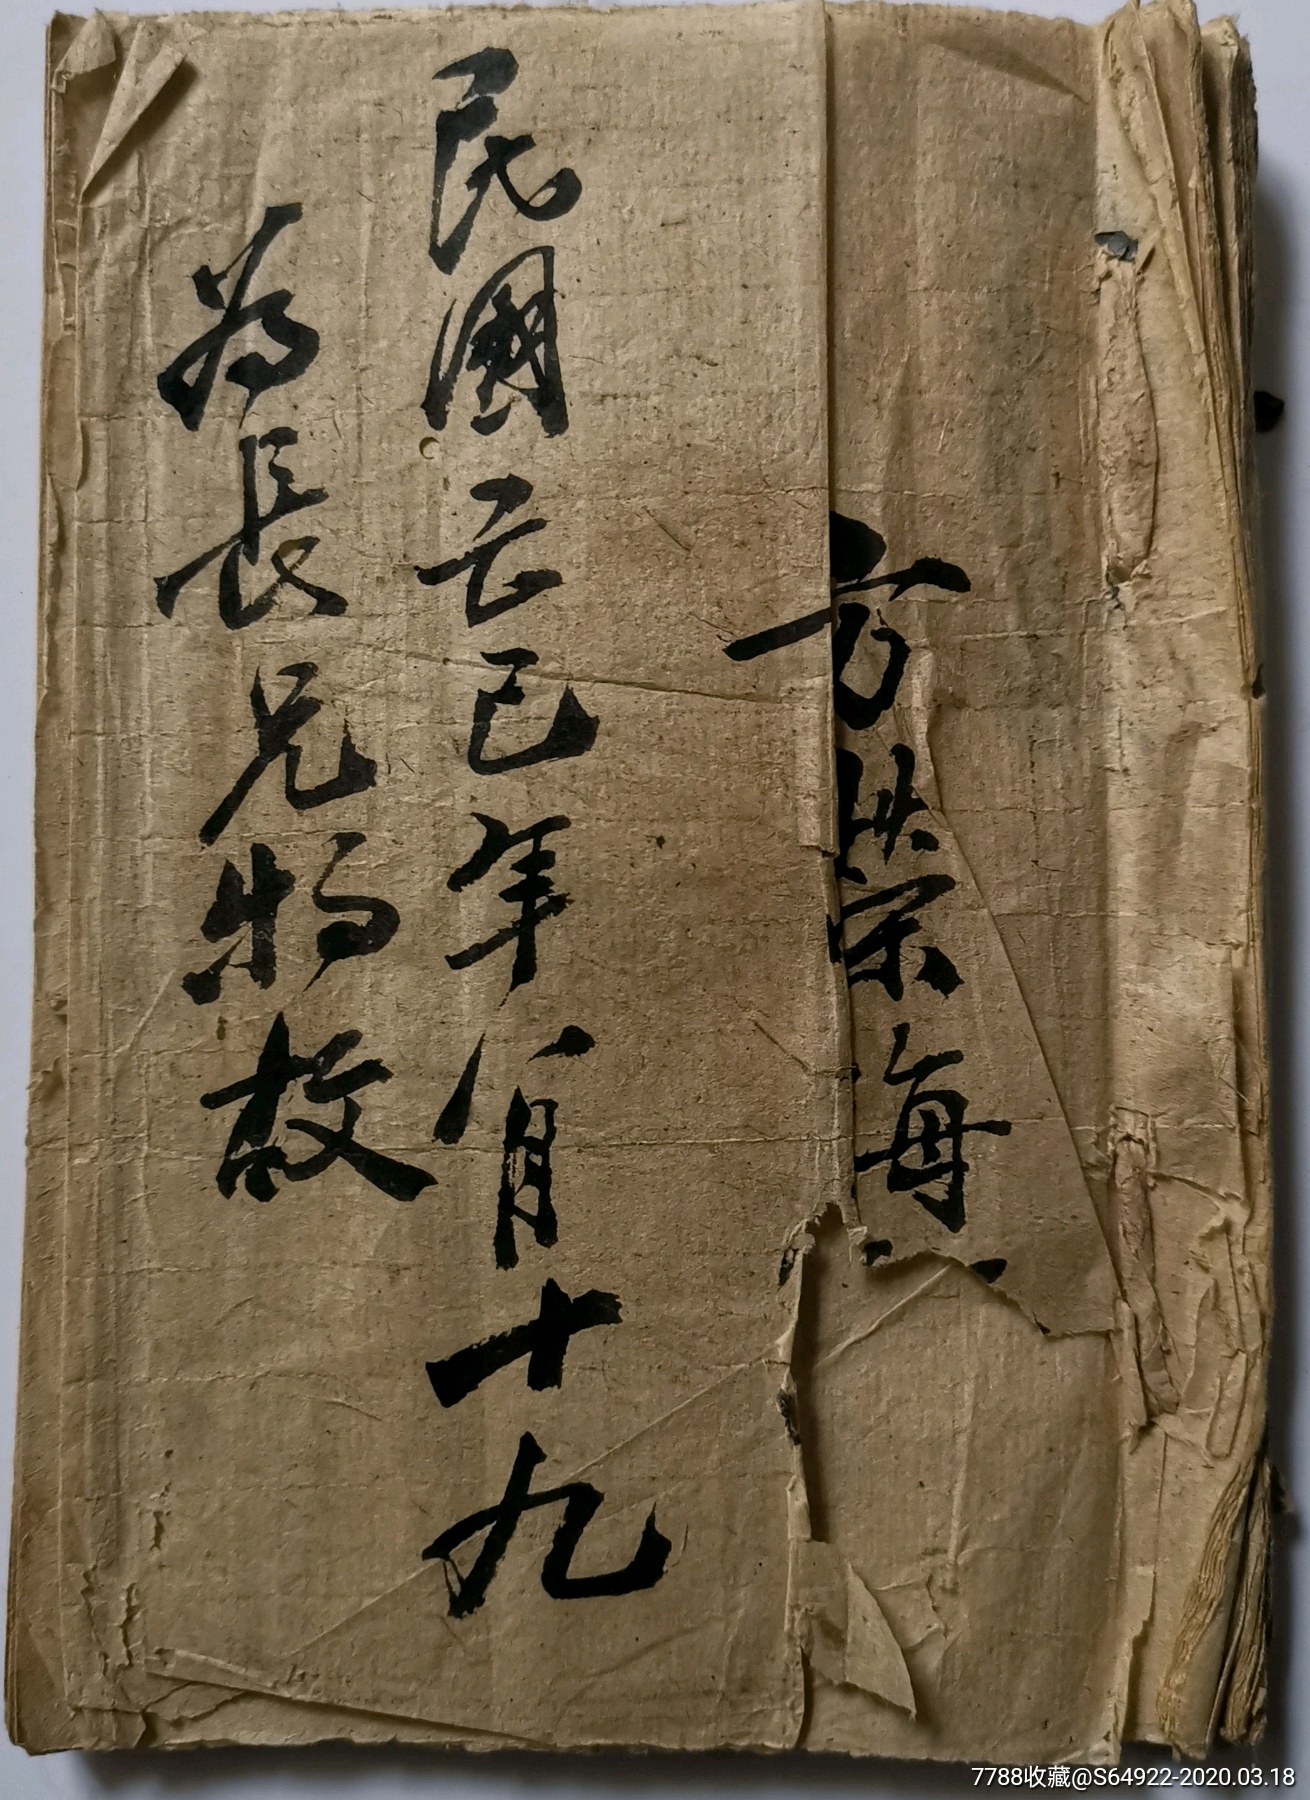 方世宗海
民國乙巳年八月十九
為長兄物故
7788收藏@S64922-2020.03.18